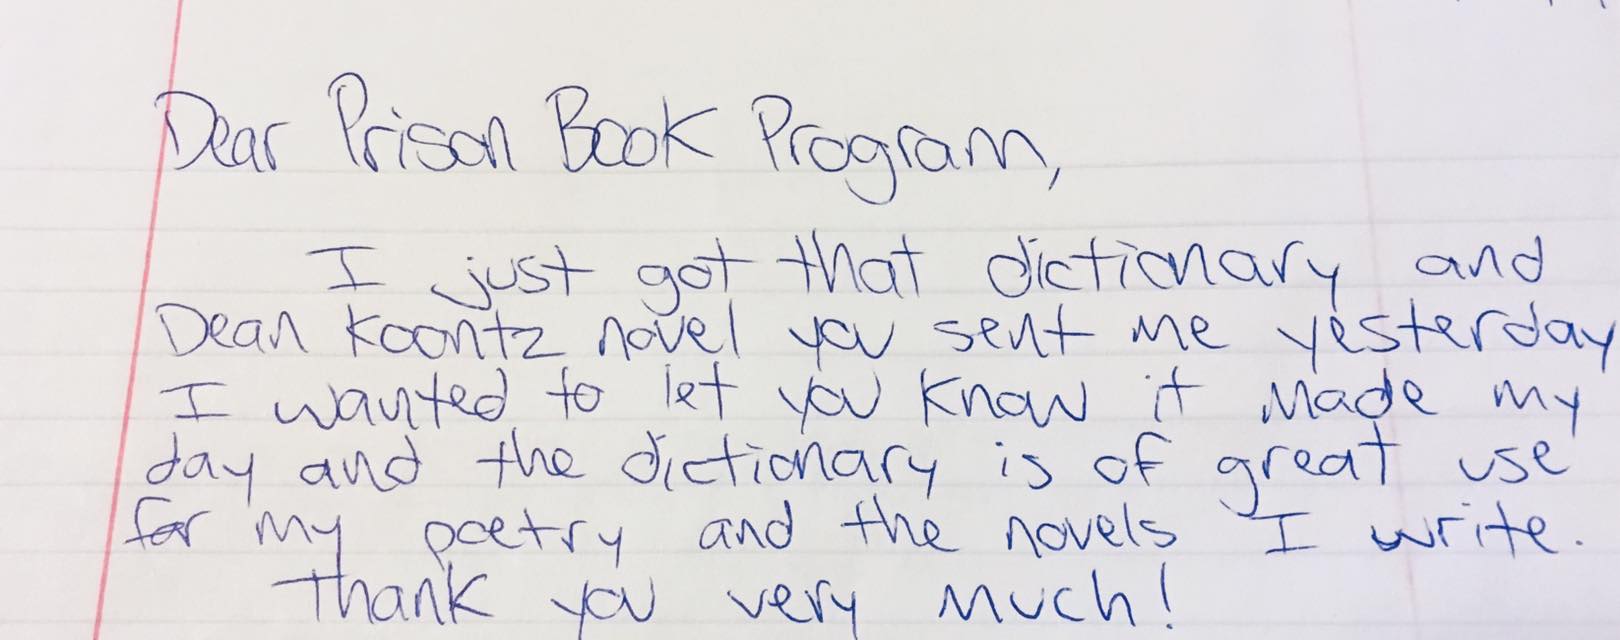 Dear Prison Book Program,
I just got that dictionary and
Dean Koontz novel you sent me yesterday
I wanted to let you know it made my
day and the dictionary is of great use
for my poetry and the novels I write.
Thank you very much!